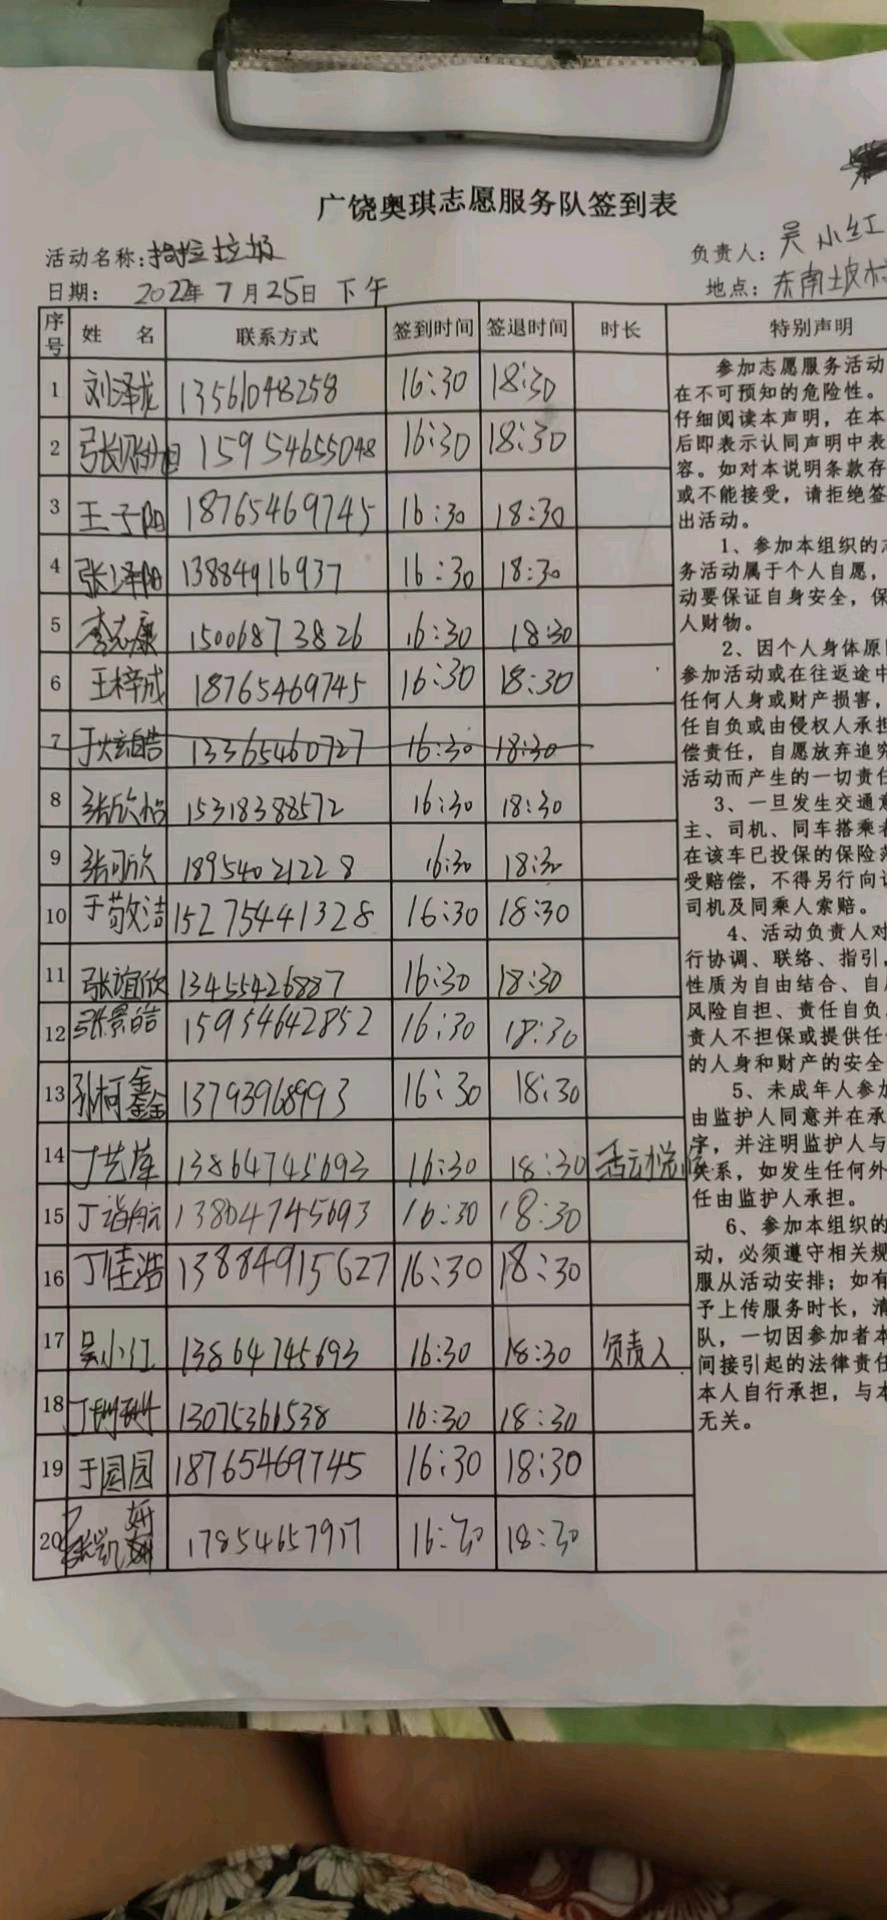 广饶奥琪志愿服务队签到表
活动名称: 捡拉圾 负责人: 吴小红
日期: 2022年7月25日下午 地点: 东南坡村
序号 姓名 联系方式 签到时间 签退时间 时长 特别声明
1 刘泽龙 13561048258 16:30 18:30
2 张 15954655048 16:30 18:30
3 王子阳 18765469745 16:30 18:30
4 张泽阳 13884916937 16:30 18:30
5 李志康 15006873826 16:30 18:30
6 王梓成 18765469745 16:30 18:30
7 于炫皓 13365460727 16:30 18:30
8 张欣怡 15318388572 16:30 18:30
9 张可欣 18954021228 16:30 18:30
10 于敬洁 15275441328 16:30 18:30
11 张谊欣 13455426887 16:30 18:30
12 张景皓 15954642852 16:30 18:30
13 孙柯鑫 13793968993 16:30 18:30
14 丁艺 13864745693 16:30 18:30
15 丁航 13804745693 16:30 18:30
16 丁佳浩 13884915627 16:30 18:30
17 吴小红 13864745693 16:30 18:30 负责人
18 丁珊珊 13075366538 16:30 18:30
19 于园园 18765469745 16:30 18:30
20 凯妍 17854657917 16:30 18:30
参加志愿服务活动
在不可预知的危险性。
仔细阅读本声明，在本
后即表示认同声明中表
容。如对本说明条款存
或不能接受，请拒绝签
出活动。
1、参加本组织的志
务活动属于个人自愿，
动要保证自身安全，保
人财物。
2、因个人身体原因
参加活动或在往返途中
任何人身或财产损害，
任自负或由侵权人承担
偿责任，自愿放弃追究
活动而产生的一切责任
3、一旦发生交通意
主、司机、同车搭乘者
在该车已投保的保险范
受赔偿，不得另行向
司机及同乘人索赔。
4、活动负责人对
行协调、联络、指引，
性质为自由结合、自愿
风险自担、责任自负。
责人不担保或提供任何
的人身和财产的安全
5、未成年人参加
由监护人同意并在承
字，并注明监护人与
关系，如发生任何外
任由监护人承担。
6、参加本组织的
动，必须遵守相关规
服从活动安排；如有
予上传服务时长，清
队，一切因参加者本
间接引起的法律责任
本人自行承担，与本
无关。